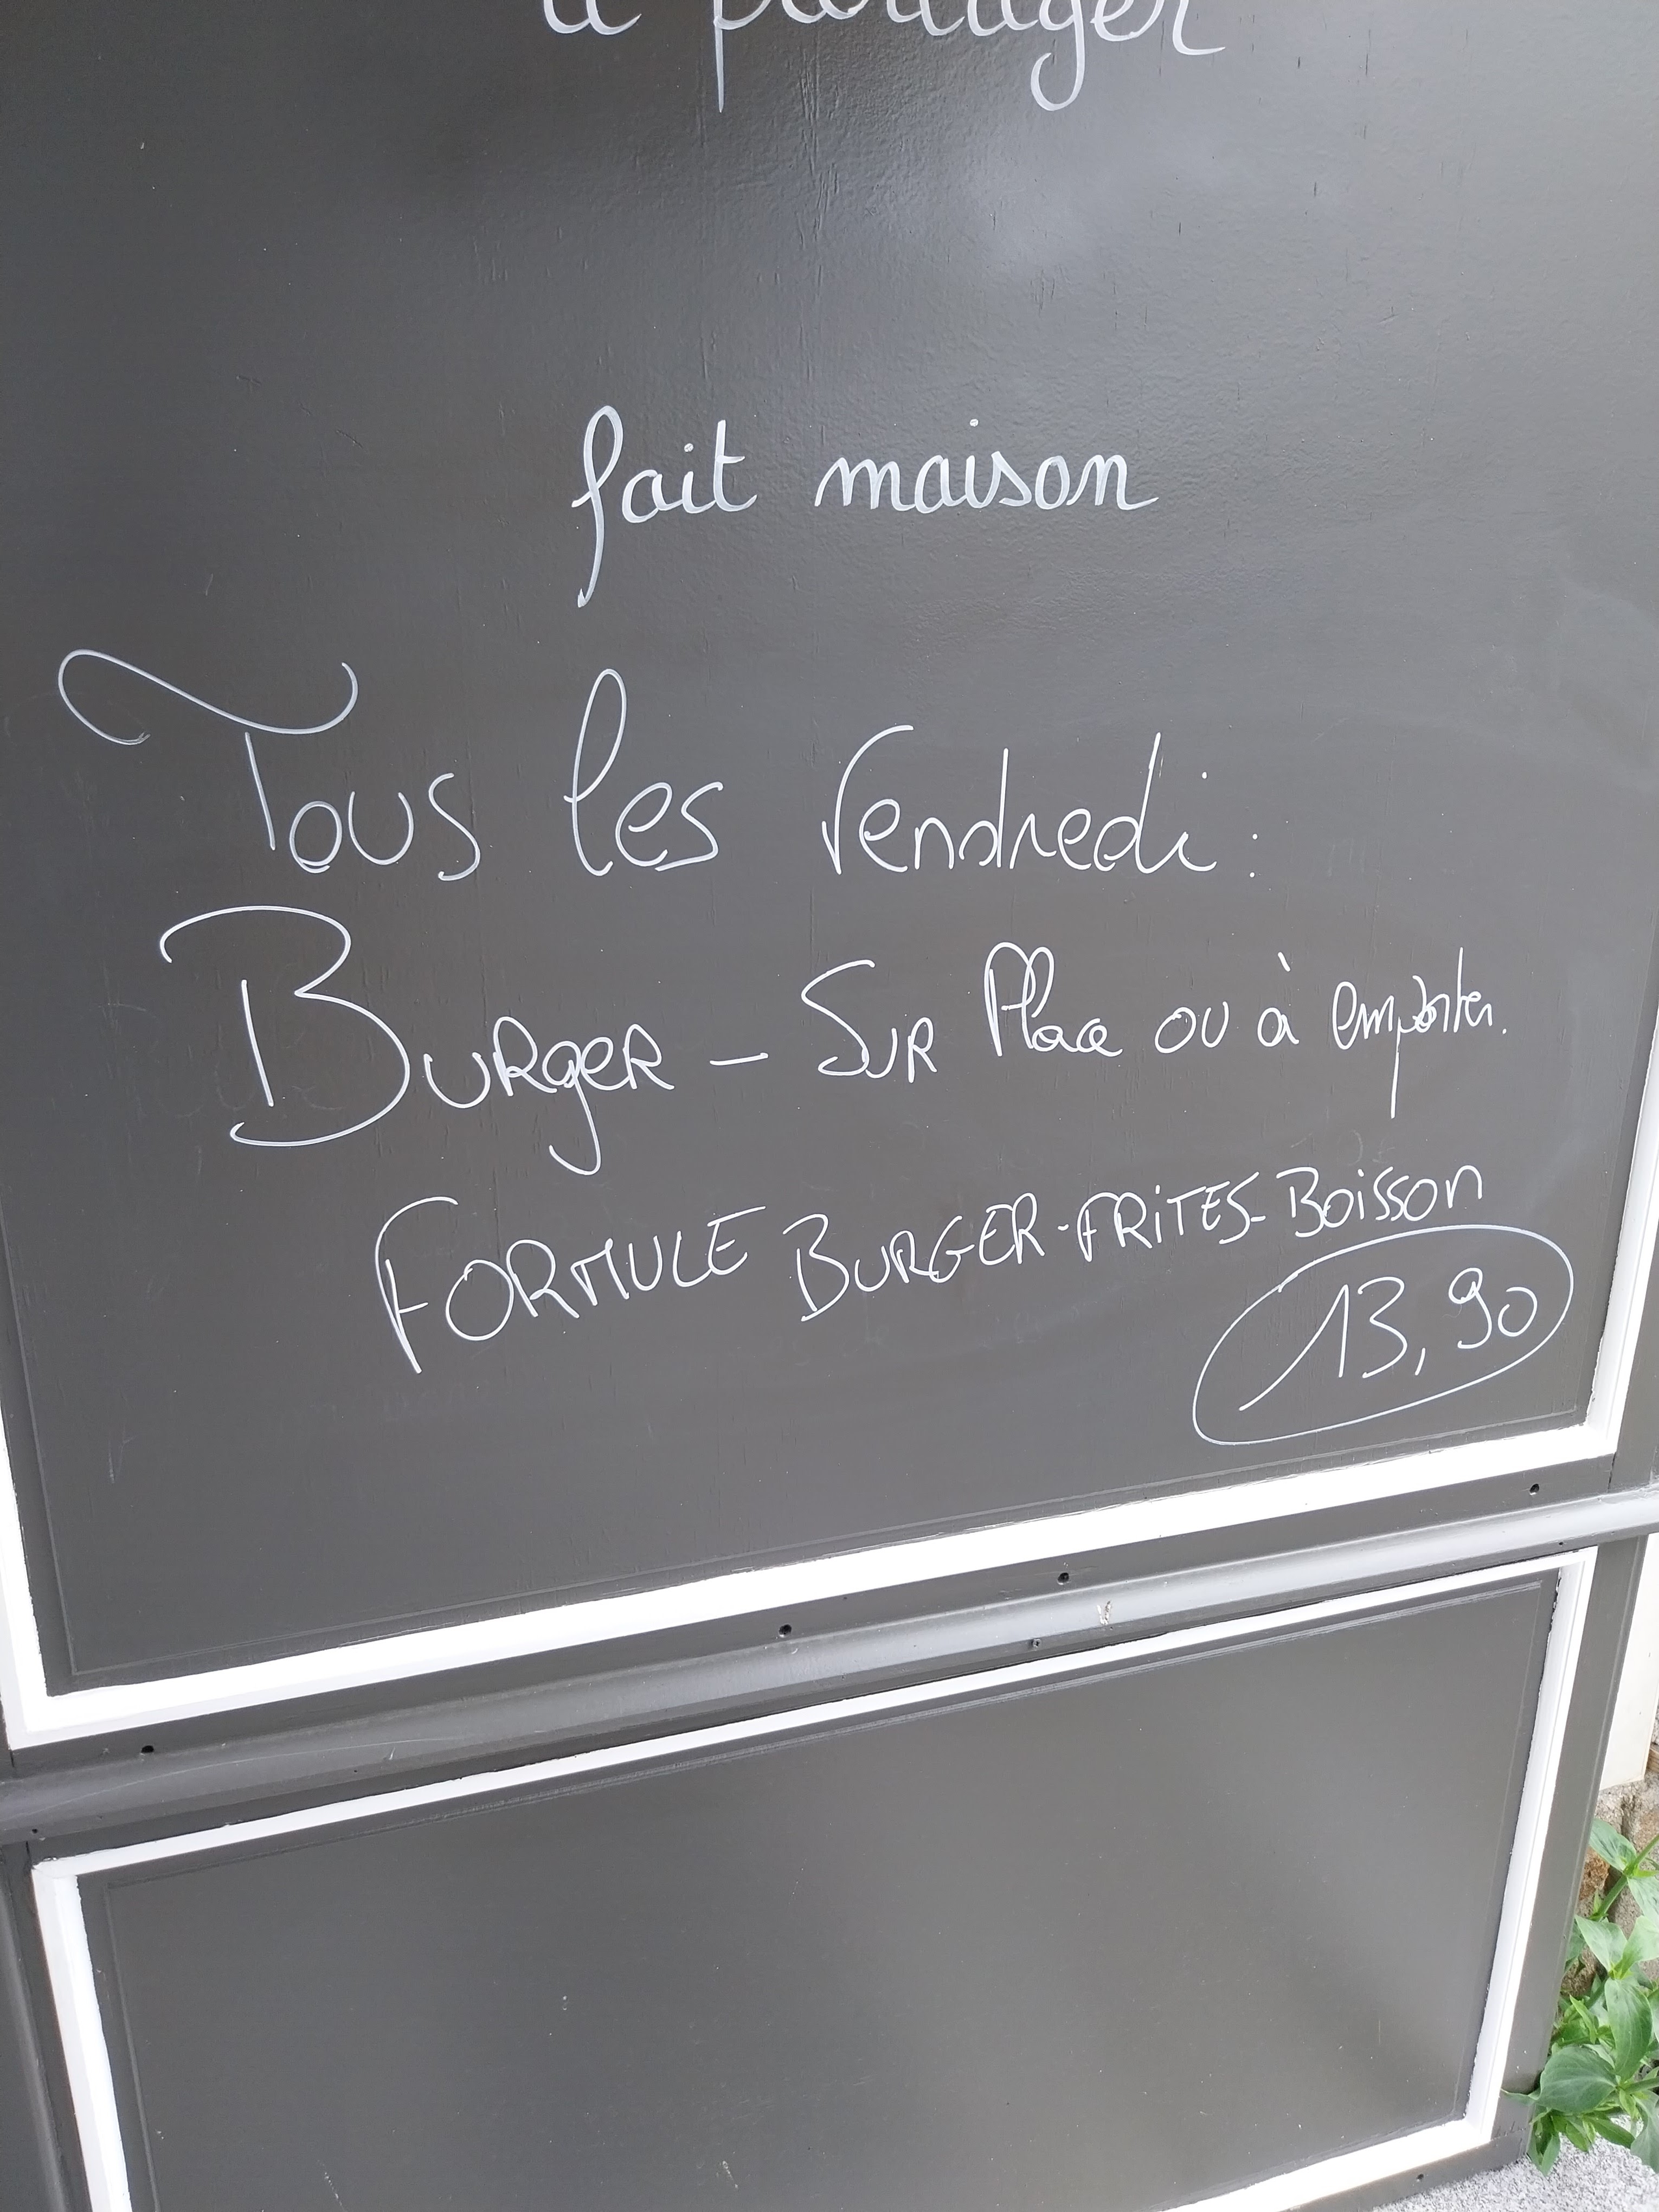 à partager
fait maison
Tous les Vendredi :
Burger - Sur Place ou à emporter.
FORMULE BURGER-FRITES-Boisson
13,90